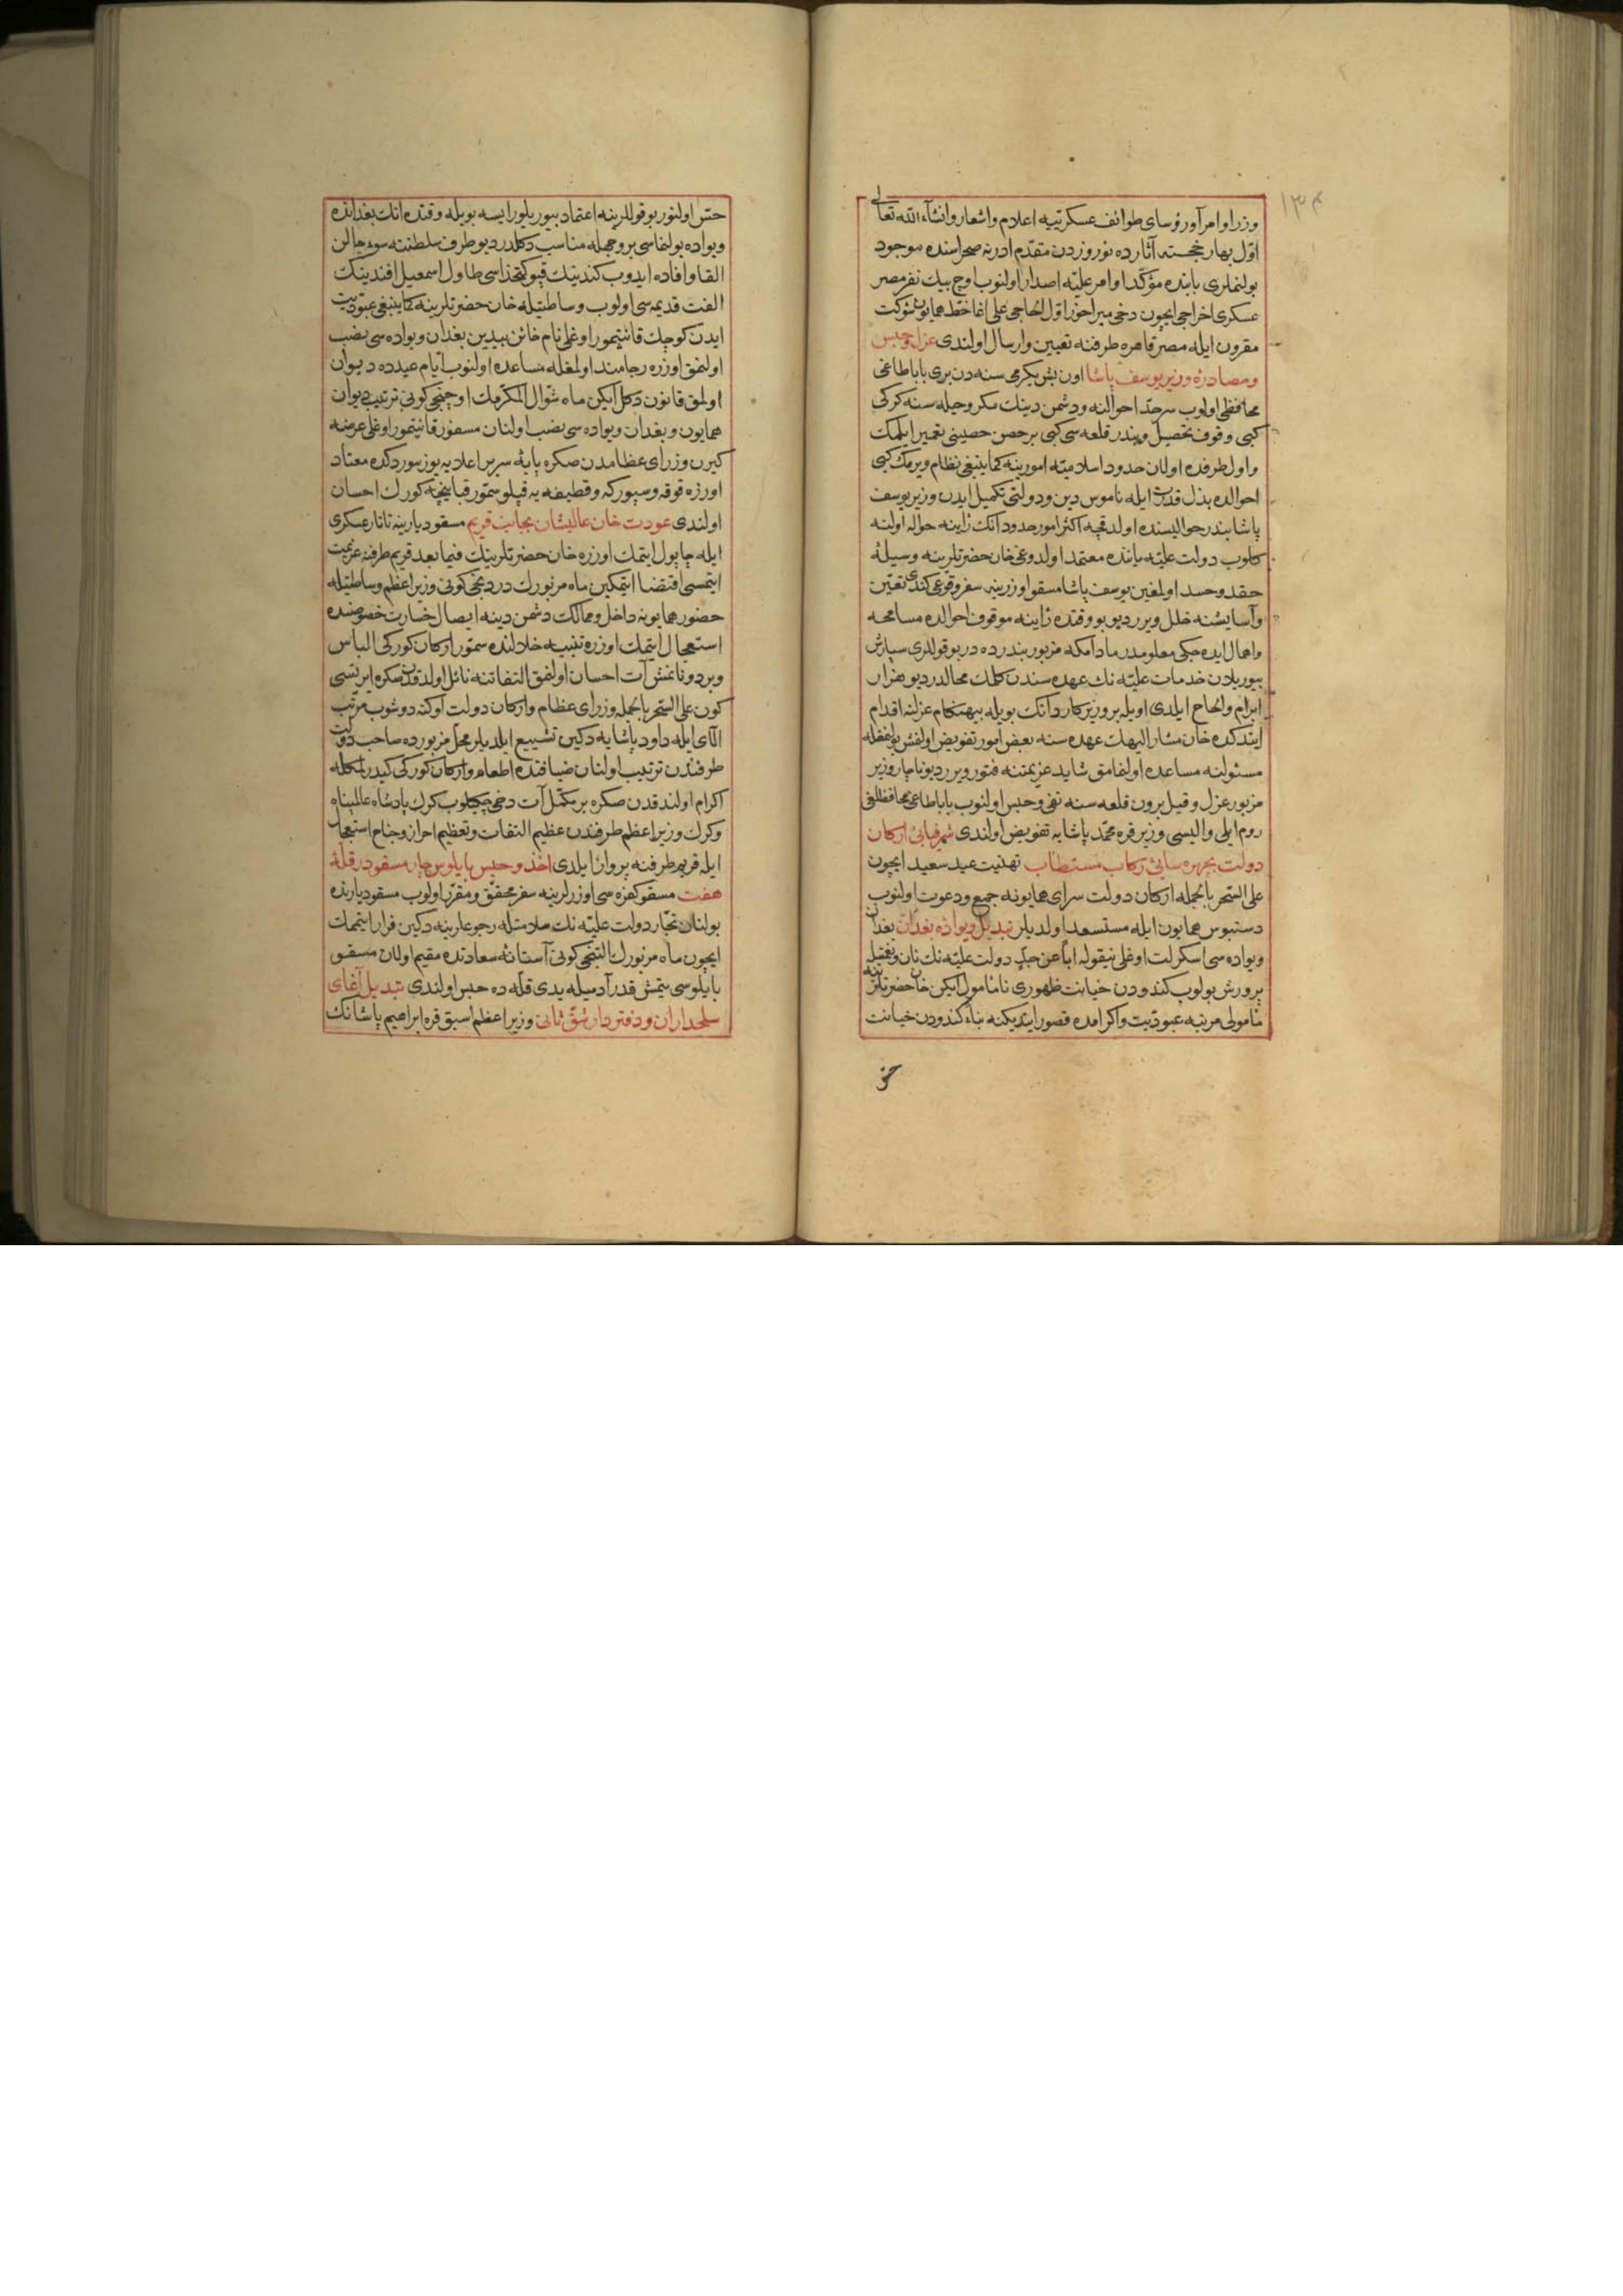 ١٣٤
وزرا و امرا و رؤسای طوائف عسکریّیه اعلام و اشعار و انشآء الله تعالی
اوّل بهار خجسته آثارده نوروزدن مقدّم ادرنه صحراسنده موجود
بولنملری بابنده مؤکّد اوامر علیّه اصدار اولنوب اوچ بیك نفر مصر
عسکری اخراجی ایچون دخی میراخور اوّل الحاجی علی اغا خطّ همایون شوکت
مقرون ایله مصر قاهره طرفنه تعیین و ارسال اولندی عزل و حبس
و مصادرۀ وزیر یوسف پاشا اون بش یکرمی سنه دن بری باباطاغی
محافظی اولوب سرحدّ احوالنه و دشمن دینك مکر و حیله سنه کرکی
کبی وقوف تحصیل و بندر قلعه سی کبی بر حصن حصینی تعمیر ایلمك
و اول طرفده اولان حدود اسلامیّه امورینه کماینبغی نظام ویرمك کبی
احوالده بذل قدرت ایله ناموس دین و دولتی تکمیل ایدن وزیر یوسف
پاشا بندر حوالیسنده اولدقچه اکثر امور حدود انك رأینه حواله اولنه
کلوب دولت علیّه یاننده معتمد اولدوغی خان حضرتلرینه وسیلۀ
حقد و حسد اولمغین یوسف پاشا مسقو اوزرینه سفر وقوعی کندی تعیّن
و آسایشنه خلل ویرر دیو بو وقتده رأینه موقوف احوالده مسامحه
و اهمال ایده جکی معلومدر مادامکه مزبور بندرده در بو قوللری سپارش
بیوریلان خدمات علیّه نك عهده سندن کلمك محالدر دیو هزار
ابرام و الحاح ایلدی اویله بر وزیر کاردانك بویله بیهنکام عزلنه اقدام
ایتدکده خان مشار الیهك عهده سنه بعض امور تفویض اولنمش بولنمغله
مسئولنه مساعده اولنمامق شاید عزیمتنه فتور ویرر دیو ناچار وزیر
مزبور عزل و قیل برون قلعه سنه نفی و حبس اولنوب باباطاغی محافظلغی
روم ایلی والیسی وزیر قره محمّد پاشایه تفویض اولندی شرفیابئ ارکان
دولت بچهره سایئ رکاب مستطاب تهنیت عید سعید ایچون
علی السّحر بالجمله ارکان دولت سرای همایونه جمع و دعوت اولنوب
دستبوس همایون ایله مستسعد اولدیلر تبدیل ویوادۀ بغدان بغدان
ویواده سی اسکرلت اوغلی نیقوله اباً عن جدّ دولت علیّه نك نان و نعمتیله
پرورش بولوب کندودن خیانت ظهوری نامأمول ایکن خان حضرتلرینه
مأمولی مرتبه عبودیّت و اکرامده قصور ایتدیکنه بناء کندودن خیانت
حسّ
حسّ اولنور بو قوللرینه اعتماد بیوریلور ایسه بویله وقتده انك بغدانده
ویواده بولنماسی بر وجهله مناسب دکلدر دیو طرف سلطنته سوء حالن
القا و افاده ایدوب کندینك قپو کتخداسی طاول اسمعیل افندینك
الفت قدیمه سی اولوب وساطتیله خان حضرتلرینه کماینبغی عبودیّت
ایدن کوچك قانتیمور اوغلی نام خائن بیدین بغدان ویواده سی نصب
اولنمق اوزره رجامند اولمغله مساعده اولنوب ایّام عیدده دیوان
اولمق قانون دکل ایکن ماه شوّال المکرّمك اوچنجی کونی ترتیب دیوان
همایون و بغدان ویواده سی نصب اولنان مسفور قانتیمور اوغلی عرضه
کیرن وزرای عظامدن صکره پایۀ سریر اعلایه یوز سوردکده معتاد
اوزره قوقه و سپورکه و قطیفه یه قپلو سمّور قبانیچه کورك احسان
اولندی عودت خان عالیشان بجانب قریم مسقو دیارینه تاتار عسکری
ایله چاپول ایتمك اوزره خان حضرتلرینك فیما بعد قریم طرفنه عزیمت
ایتمسی اقتضا ایتمکین ماه مزبورك دردنجی کونی وزیر اعظم وساطتیله
حضور همایونه داخل و ممالك دشمن دینه ایصال خسارت خصوصنده
استعجال ایتمك اوزره تنبیه خلالنده سمّور ارکان کورکی الباس
و بر دونانمش آت احسان اولنمق التفاتنه نائل اولدقدن صکره ایرتسی
کون علی السّحر بالجمله وزرای عظام و ارکان دولت اوکنه دوشوب مرتّب
آلای ایله داود پاشایه دکین تشییع ایلدیلر محلّ مزبورده صاحب دولت
طرفندن ترتیب اولنان ضیافتده اطعام و ارکان کورکی کیدرلمکله
اکرام اولندقدن صکره بر مکمّل آت دخی چکیلوب کرك پادشاه عالمپناه
و کرك وزیر اعظم طرفندن عظیم التفات و تعظیم احراز و جناح استعجال
ایله قریم طرفنه پرواز ایلدی اخذ و حبس بایلوس چار مسقو در قلّۀ
هفت مسقو کفره سی اوزرلرینه سفر محقّق و مقرّر اولوب مسقو دیارنده
بولنان تجّار دولت علیّه نك سلامتله رجوعلرینه دکین فرار ایتمامك
ایچون ماه مزبورك التنجی کونی آستانۀ سعادتده مقیم اولان مسقو
بایلوسی یتمش قدر آدمیله یدی قلّه ده حبس اولندی تبدیل آغای
سلحداران و دفتردار شقّ ثانی وزیر اعظم اسبق قره ابراهیم پاشانك